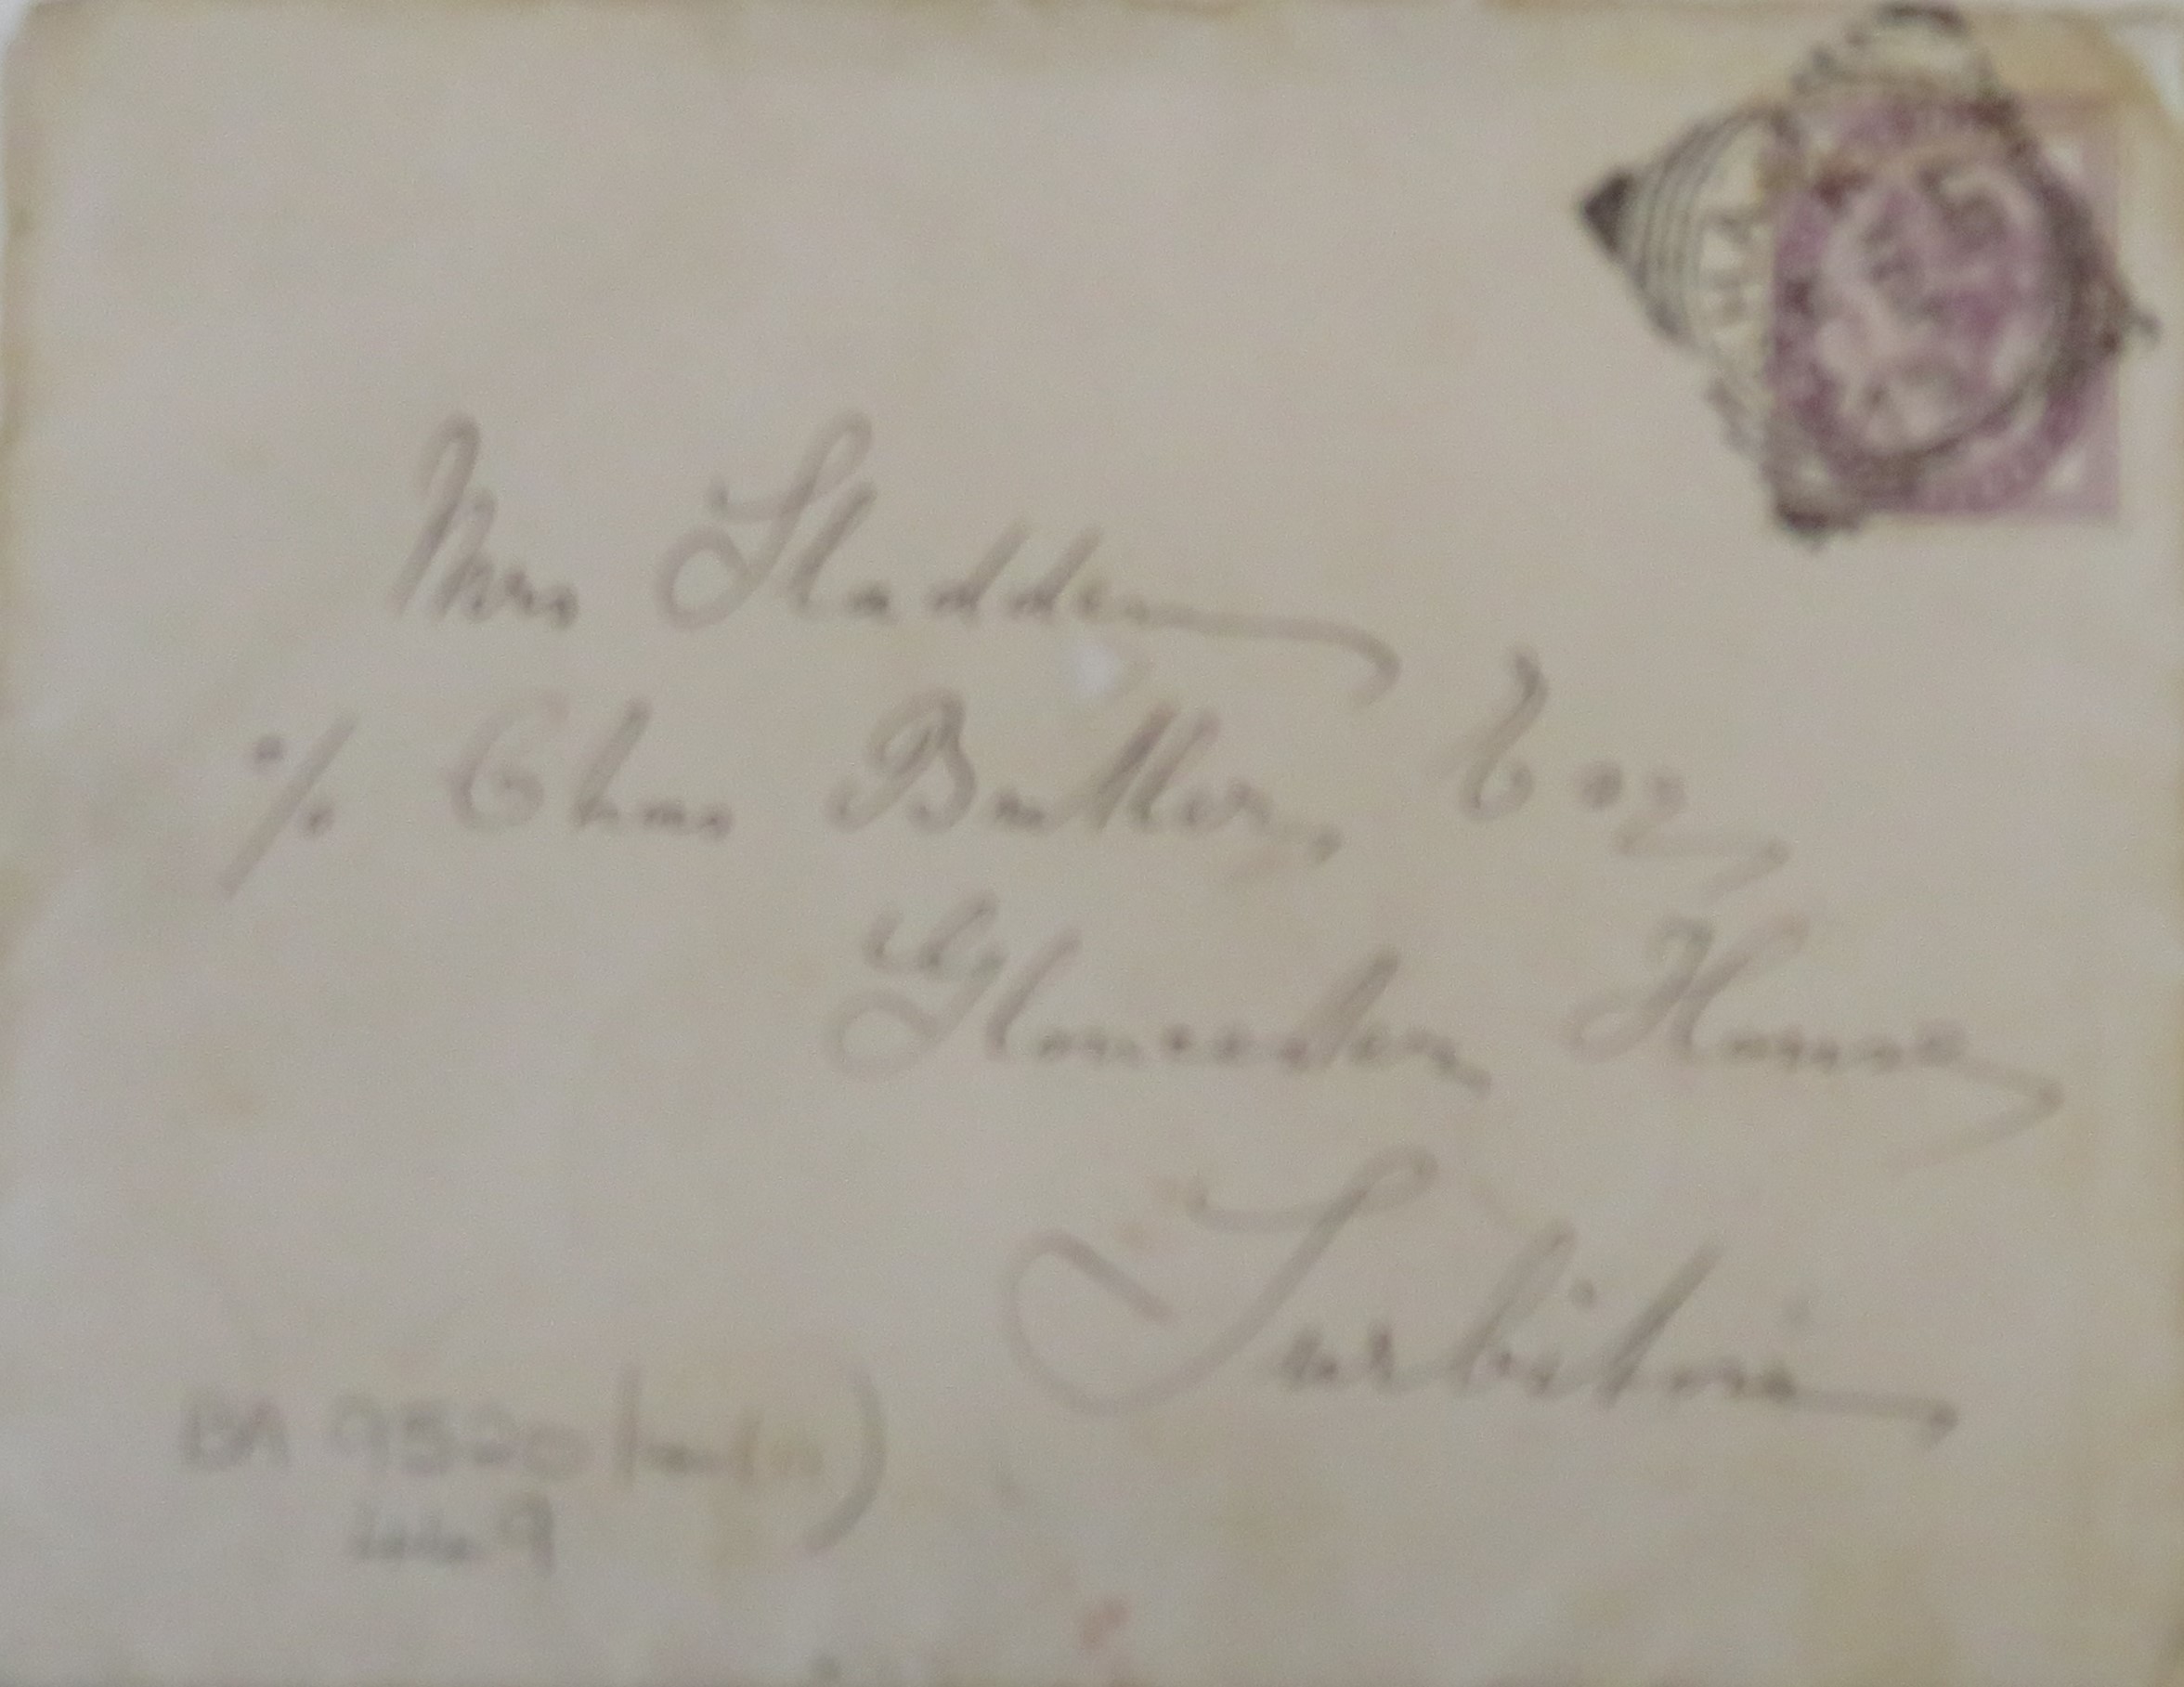 Mrs Sladden
c/o Chas Butler, Esq
Gloucester House
Surbiton
BA 9520
9